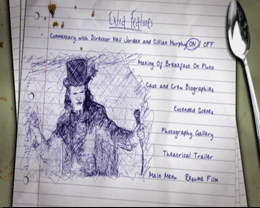 Extra Features
Commentary with Director Neil Jordan and Cillian Murphy ON / OFF
Making Of Breakfast On Pluto
Cast and Crew Biographies
Extended Scenes
Photography Gallery
Theatrical Trailer
Main Menu Resume Film